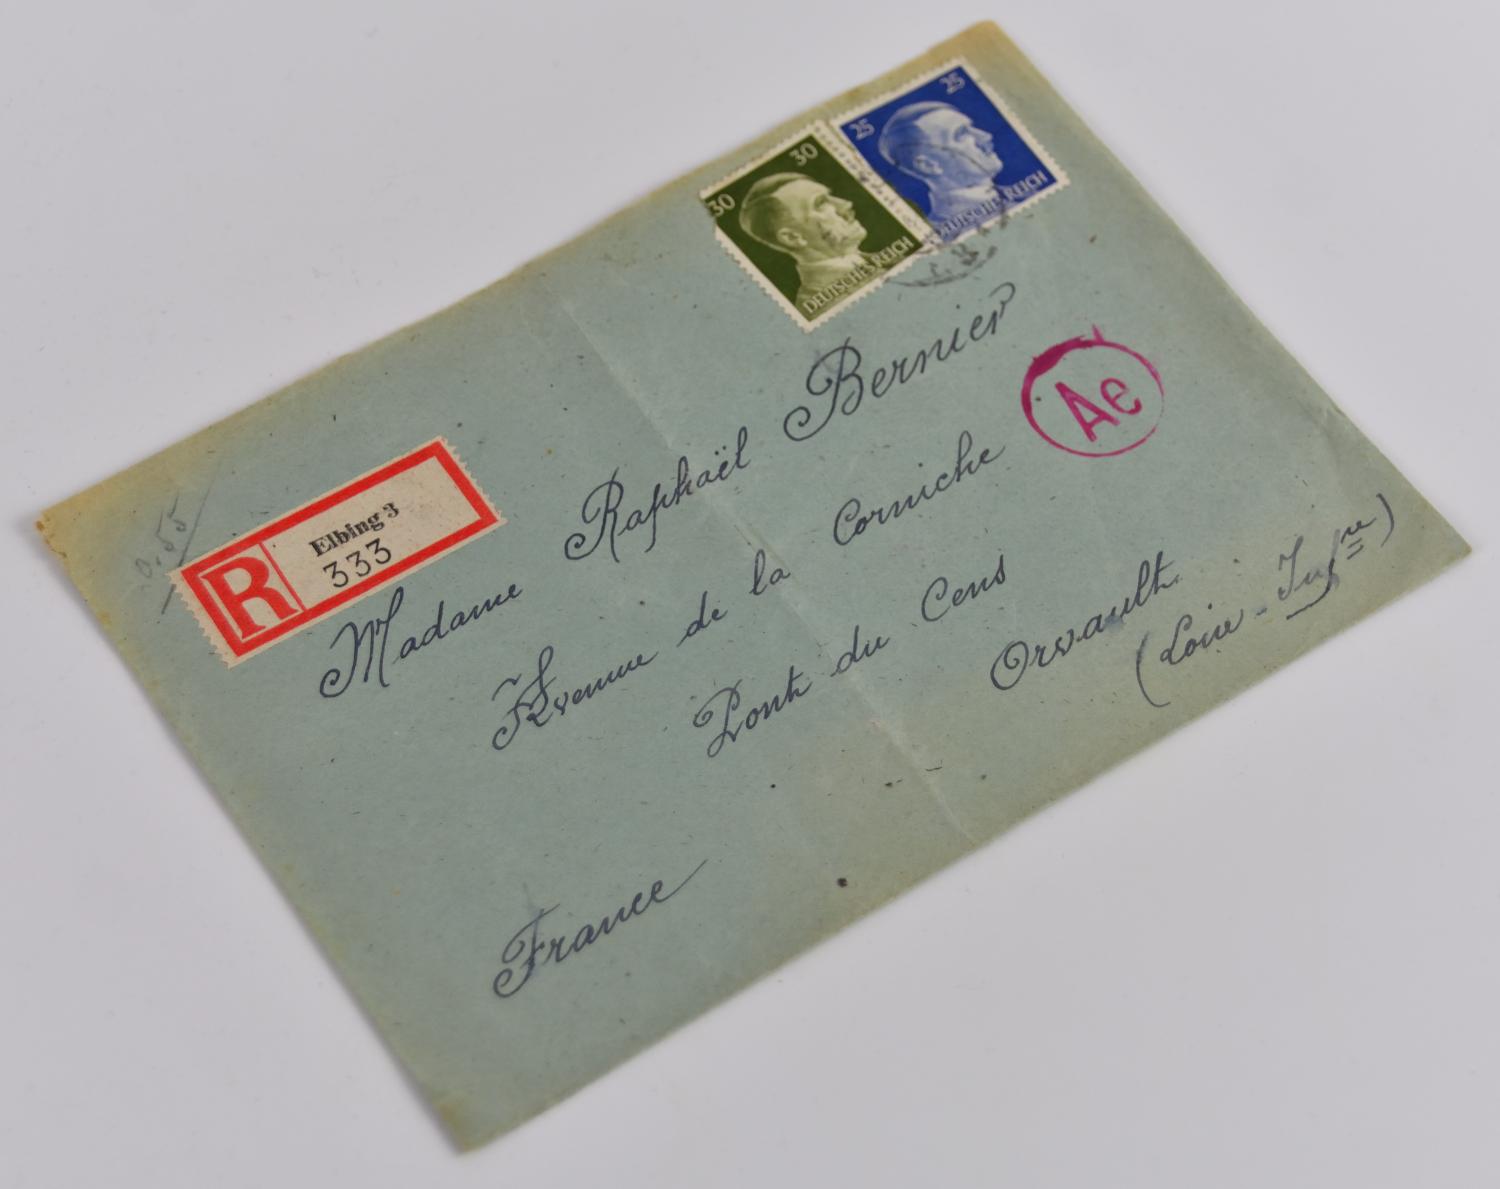 25 25
DEUTSCHES REICH
30 30
DEUTSCHES REICH
0.55
R
Elbing 3
333
Ae
Madame Raphaël Bernier
Avenue de la Corniche
Pont du Cens
Orvault
(Loire-Infre)
France